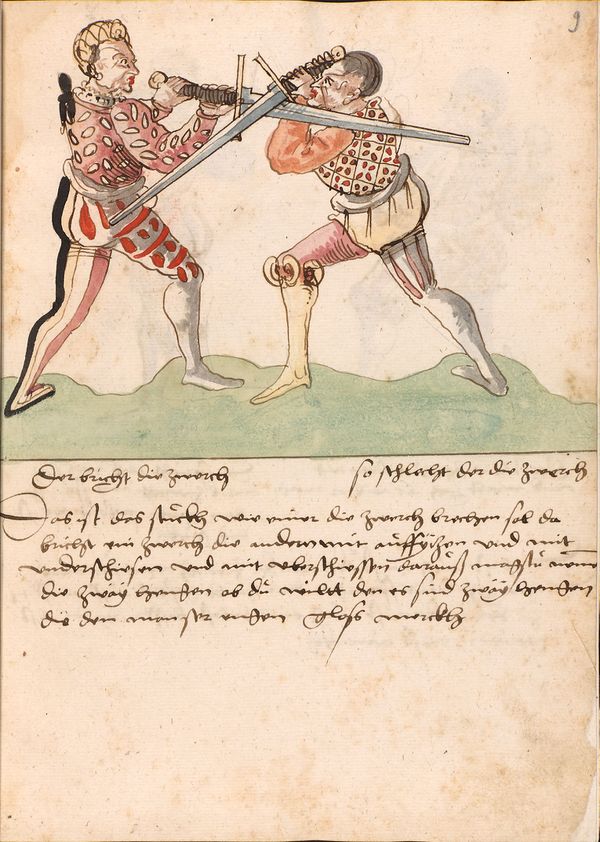 9
Der bricht die zwerch
so schlecht der die zwerch
Das ist das stuckh wie einer die zwerch brechen sol da
bricht ein zwerch die andern mit auff und mit
underschiesen und mit uberschiessen darauß magstu
die zway hengen ob du wildt den es sind zway hengen
die dem man ser engen gloss merckh